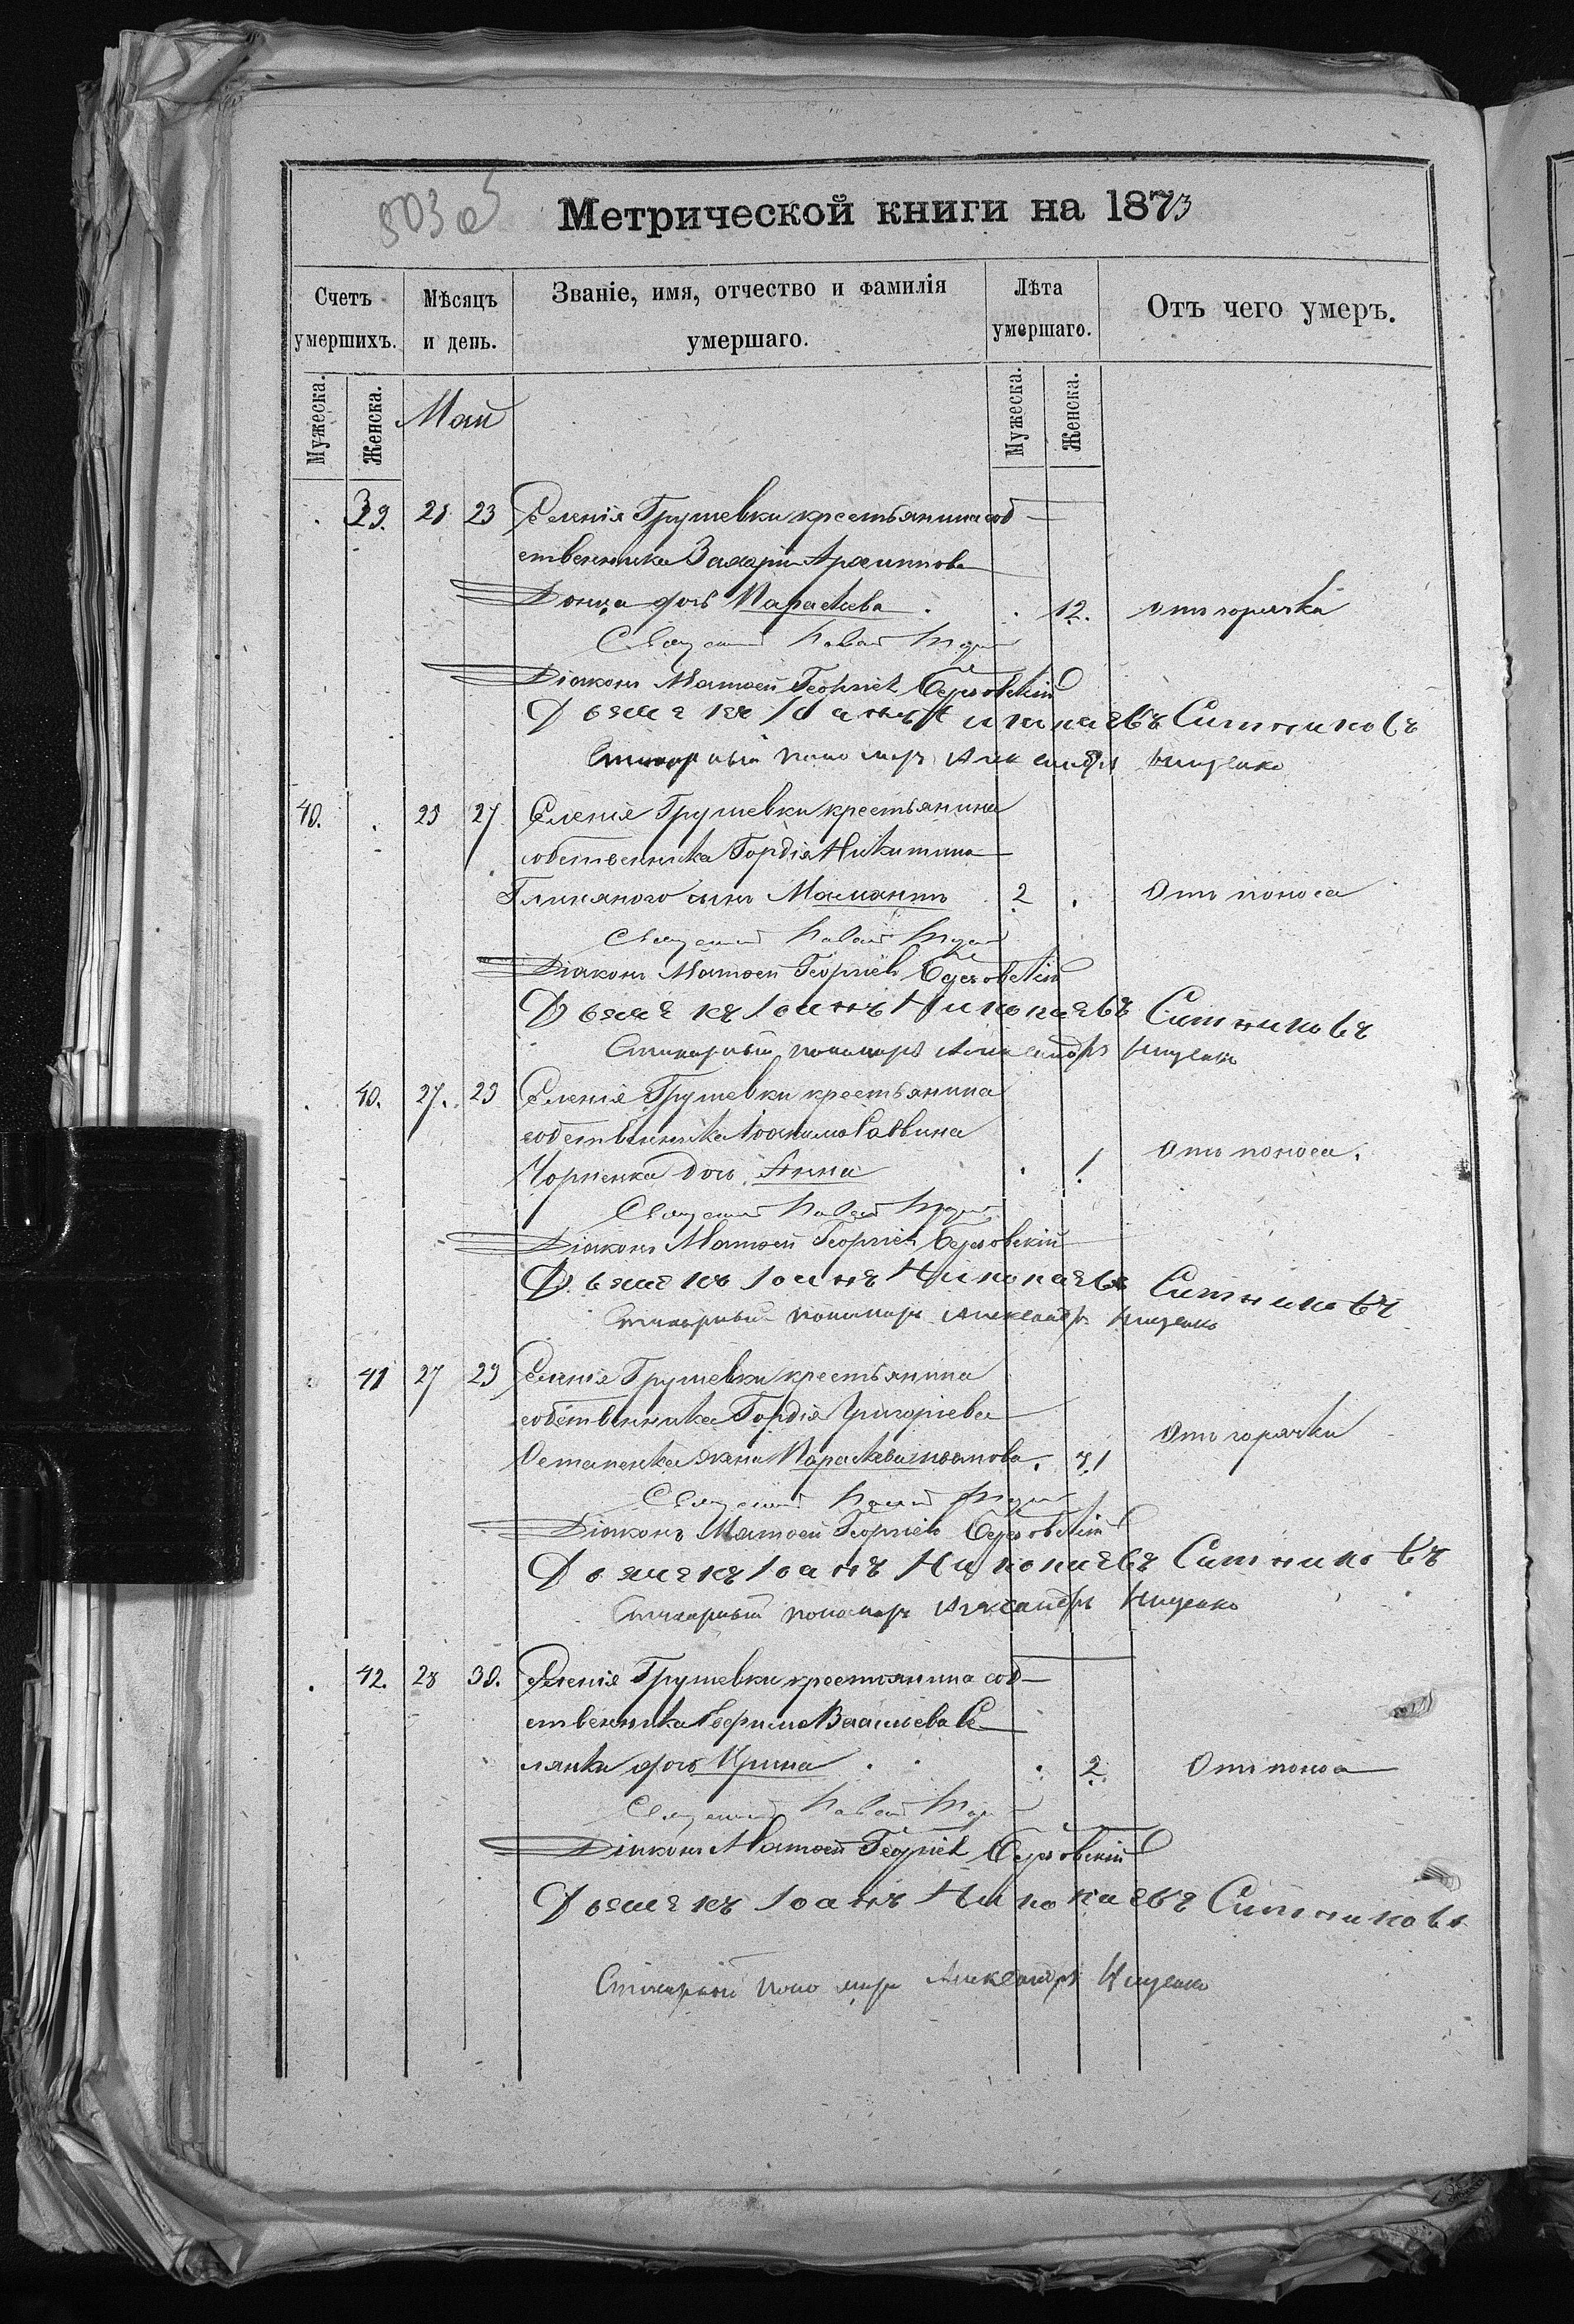 503 об
Метрической книги на 1873
Счетъ умершихъ.
Мѣсяцъ и день.
Званіе, имя, отчество и фамилія умершаго.
Лѣта умершаго.
Отъ чего умеръ.
Мужеска.
Женска.
Май
Мужеска.
Женска.
39. 21 23 Селенія Грушевки крестьянина соб
ственника Захарія Архиппова
Донца дочь Параскева . . 12. отъ горячки
Священникъ Павелъ
Діаконъ Матѳей Георгіевъ
Дьячекъ Іоанъ Николаевъ Ситниковъ
Стихарный пономарь Александръ Ищенко
40. . 25 27 Селенія Грушевки крестьянина
собственника Гордія Никитина
сынъ Мамантъ . 2 . Отъ поноса
Священникъ Павелъ
Діаконъ Матѳей Георгіевъ
Дьячекъ Іоанъ Николаевъ Ситниковъ
Стихарный пономарь Александръ Ищенко
. 40. 27. 29 Селенія Грушевки крестьянина
собственника Іоакима Саввина
Чорненка дочь Анна . 1 Отъ поноса.
Священникъ Павелъ
Діаконъ Матѳей Георгіевъ
Дьячекъ Іоанъ Николаевъ Ситниковъ
Стихарный пономарь Александръ Ищенко
41 27 29 Селенія Грушевки крестьянина
собственника Гордія Григоріева
Остапенка жена Параскева . 71 Отъ горячки
Священникъ Павелъ
Діаконъ Матѳей Георгіевъ
Дьячекъ Іоанъ Николаевъ Ситниковъ
Стихарный пономарь Александръ Ищенко
. 42. 28 30. Селенія Грушевки крестьянина соб
ственника Василіева Се
лянки дочь Ирина . . . 2. Отъ поноса
Священникъ Павелъ
Діаконъ Матѳей Георгіевъ
Дьячекъ Іоанъ Николаевъ Ситниковъ
Стихарный пономарь Александръ Ищенко